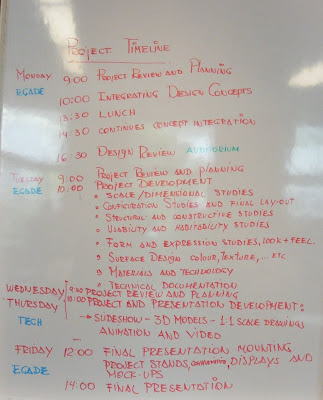 PROJECT TIMELINE
MONDAY 9:00 PROJECT REVIEW AND PLANNING
EGADE
10:00 INTEGRATING DESIGN CONCEPTS
13:30 LUNCH
14:30 CONTINUES CONCEPT INTEGRATION
16:30 DESIGN REVIEW AUDITORIUM
TUESDAY 9:00 PROJECT REVIEW AND PLANNING
EGADE 10:00 PROJECT DEVELOPMENT
• SCALE/DIMENSIONAL STUDIES
• CONFIGURATION STUDIES AND FINAL LAY-OUT
• STRUCTURAL AND CONSTRUCTIVE STUDIES
• USABILITY AND HABITABILITY STUDIES
• FORM AND EXPRESSION STUDIES, LOOK + FEEL.
• SURFACE DESIGN COLOUR, TEXTURE, ... ETC
• MATERIALS AND TECHNOLOGY
• TECHNICAL DOCUMENTATION
WEDNESDAY 9:00 PROJECT REVIEW AND PLANNING
THURSDAY 10:00 PROJECT AND PRESENTATION DEVELOPMENT:
TECH → SLIDESHOW - 3D MODELS - 1:1 SCALE DRAWINGS
ANIMATION AND VIDEO
FRIDAY 12:00 FINAL PRESENTATION MOUNTING
EGADE PROJECT STANDS, DISPLAYS AND
MOCK-UPS
14:00 FINAL PRESENTATION